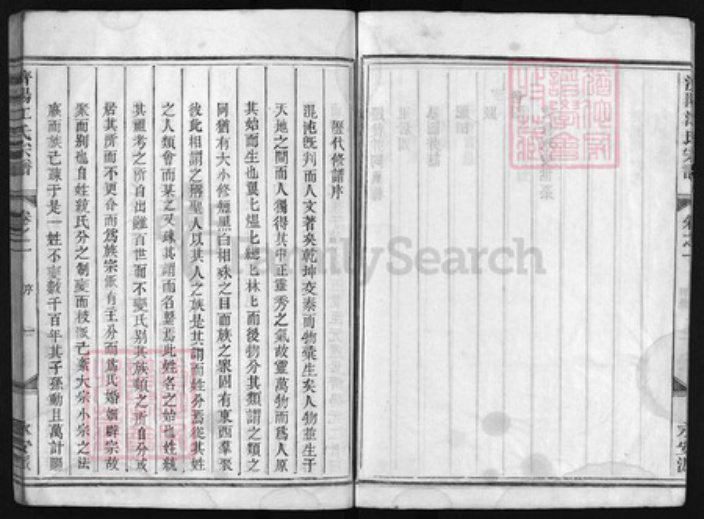 濟陽江氏宗譜
卷之一
永安派
歷代修譜序
混沌旣判而人文著矣乾坤交泰而物彙生矣人物並生于
天地之間而人獨得其中正靈秀之氣故靈萬物而爲人原
其始而生也巽匕熅匕總匕林匕而後物分其類謂之類之
同猶有大小修短黑白相殊之目而族之衆固有東西羣
彼此相謂之稱聖人以其人之族是其謂而姓分焉從其姓
之人類會而某之又殊其謂而名繫焉此姓名之始也姓統
其祖考之所自出雖百世而不變氏别其族類之所自分或
居其所而不更合而爲族宗派有主分而爲氏婚姻辟宗故
系而别也自姓統氏分之制變而枝派已紊大宗小宗之法
廢而族已疎于是一姓不變數千百年其子孫動且萬計
濟陽江氏宗譜
卷之一
序
一
永安派
FamilySearch